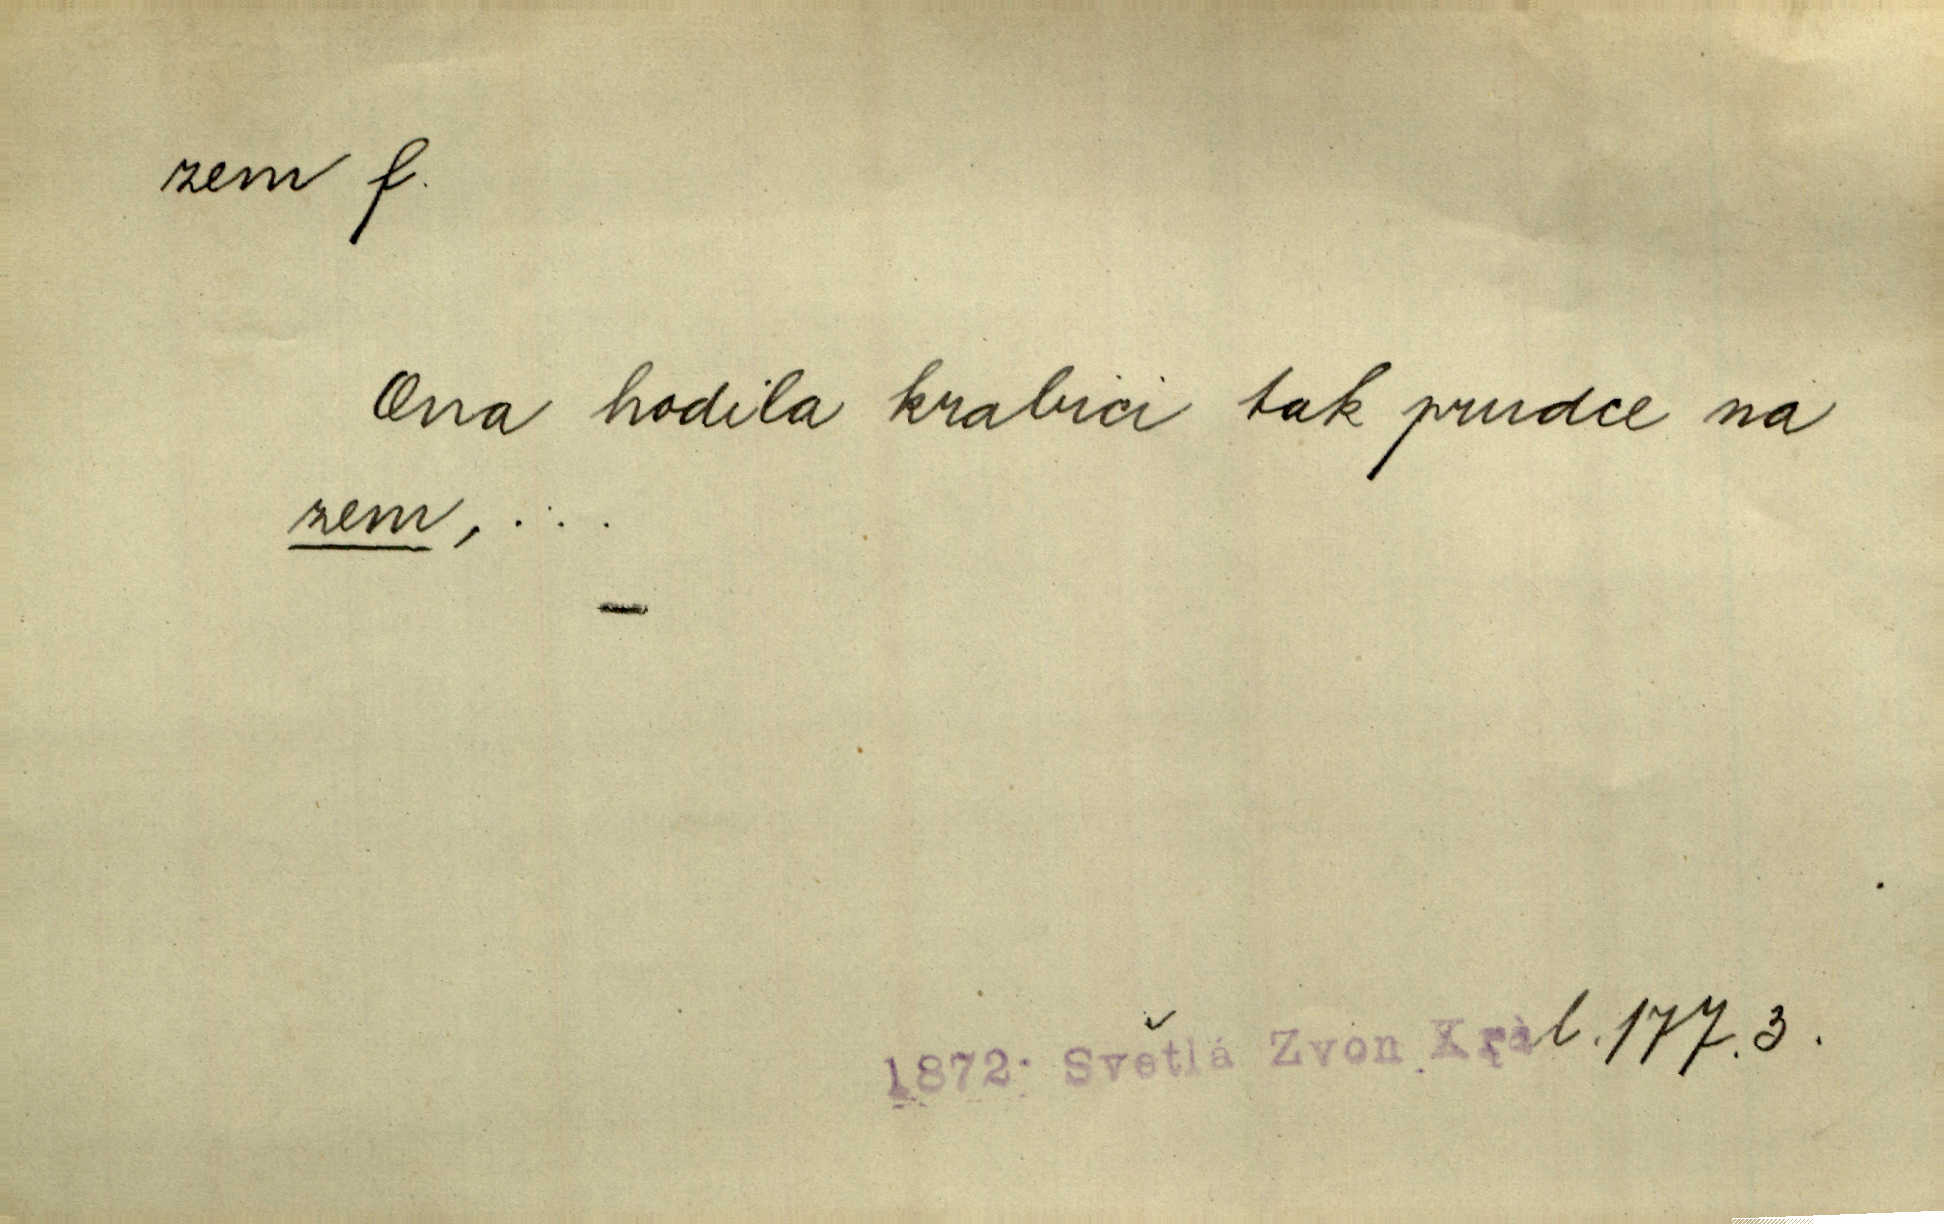 zem f.
Ona hodila krabici tak prudce na
zem, ....
—
1872. Světlá Zvon Král. 177.3.